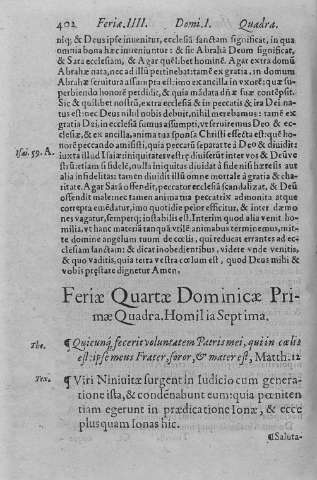 402 Feriæ IIII. Domi. I. Quadra.
niq; & Deus ipse inuenitur, ecclesiã sanctam significat, in qua
omnia bona hæc inueniuntur: & sic Abrahã Deum significat,
& Sara ecclesiam, & Agar quẽlibet hominẽ. Agar extra domũ
Abrahæ nata, nec ad illũ pertinebat: tamẽ ex gratia, in domum
Abrahæ seruitura assumpta est: imo ex ancilla in vxorẽ: quæ su-
perbiendo honorẽ perdidit, & quia mãdata dñi suæ contẽpsit.
Sic & quilibet nostrũ, extra ecclesiã & in peccatis & ira Dei na-
tus est: nec Deus nihil nobis debuit, nihil merebamus: tamẽ ex
gratia Dei, in ecclesiã sumus assumpti, vt seruiremus Deo & ec-
clesiæ, & ex ancilla, anima tua sponsa Christi effecta est: quẽ ho-
norẽ peccando amisisti, quia peccatũ separat te à Deo & diuidit:
Isai. 59. A. iuxta illud Isaiæ: iniquitates vestræ diuiserũt inter vos & Deũ ve-
strũ: et si enim sis fidelis, nulla iniquitas diuidat à fide nisi hæresis aut
alia infidelitas: tamen diuidit illũ omne mortale à gratia & cha-
ritate. Agar Sarã offendit, peccator ecclesiã scandalizat, & Deũ
offendit malè: nec tamen anima tua peccatrix admonita atque
correpta emẽdatur, imo quotidie peior efficitur, & inter dæmo-
nes vagatur, semperq; instabilis est. Interim quod alia venit ho-
milia, vt hanc materiã tanquã vtilẽ animabus terminemus, mit-
te domine angelum tuum de cœlis, qui reducat errantes ad ec-
clesiam sanctam: & dicat inobedientibus, videte vnde venitis,
& quo vaditis, quia terra vestra cœlum est, quod Deus mihi &
vobis præstare dignetur Amen.
Feriæ Quartæ Dominicæ Pri-
mæ Quadra. Homilia Septima.
The. ¶ Quicunq; fecerit voluntatem Patris mei, qui in cœlis
est: ipse meus Frater, soror, & mater est, Matth. 12
Tex. ¶ Viri Niniuitæ surgent in Iudicio cum genera-
tione ista, & condẽnabunt eum: quia pœniten
tiam egerunt in prædicatione Ionæ, & ecce
plus quam Ionas hic.
¶ Saluta-